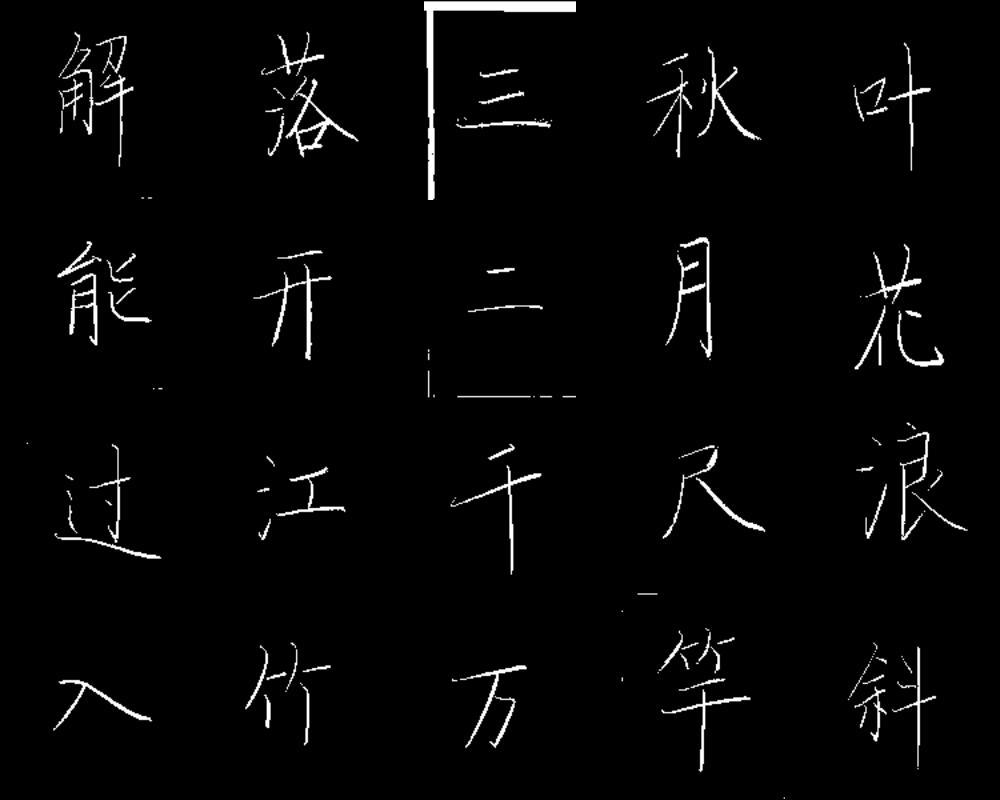 解落三秋叶
能开二月花
过江千尺浪
入竹万竿斜